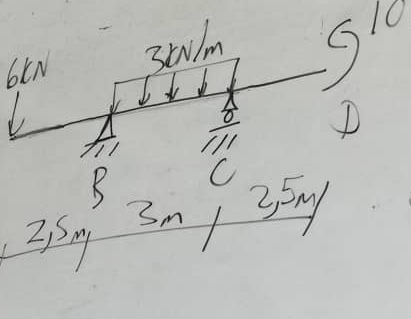 10
3kN/m
6kN
D
B
C
2,5m
3m
2,5m